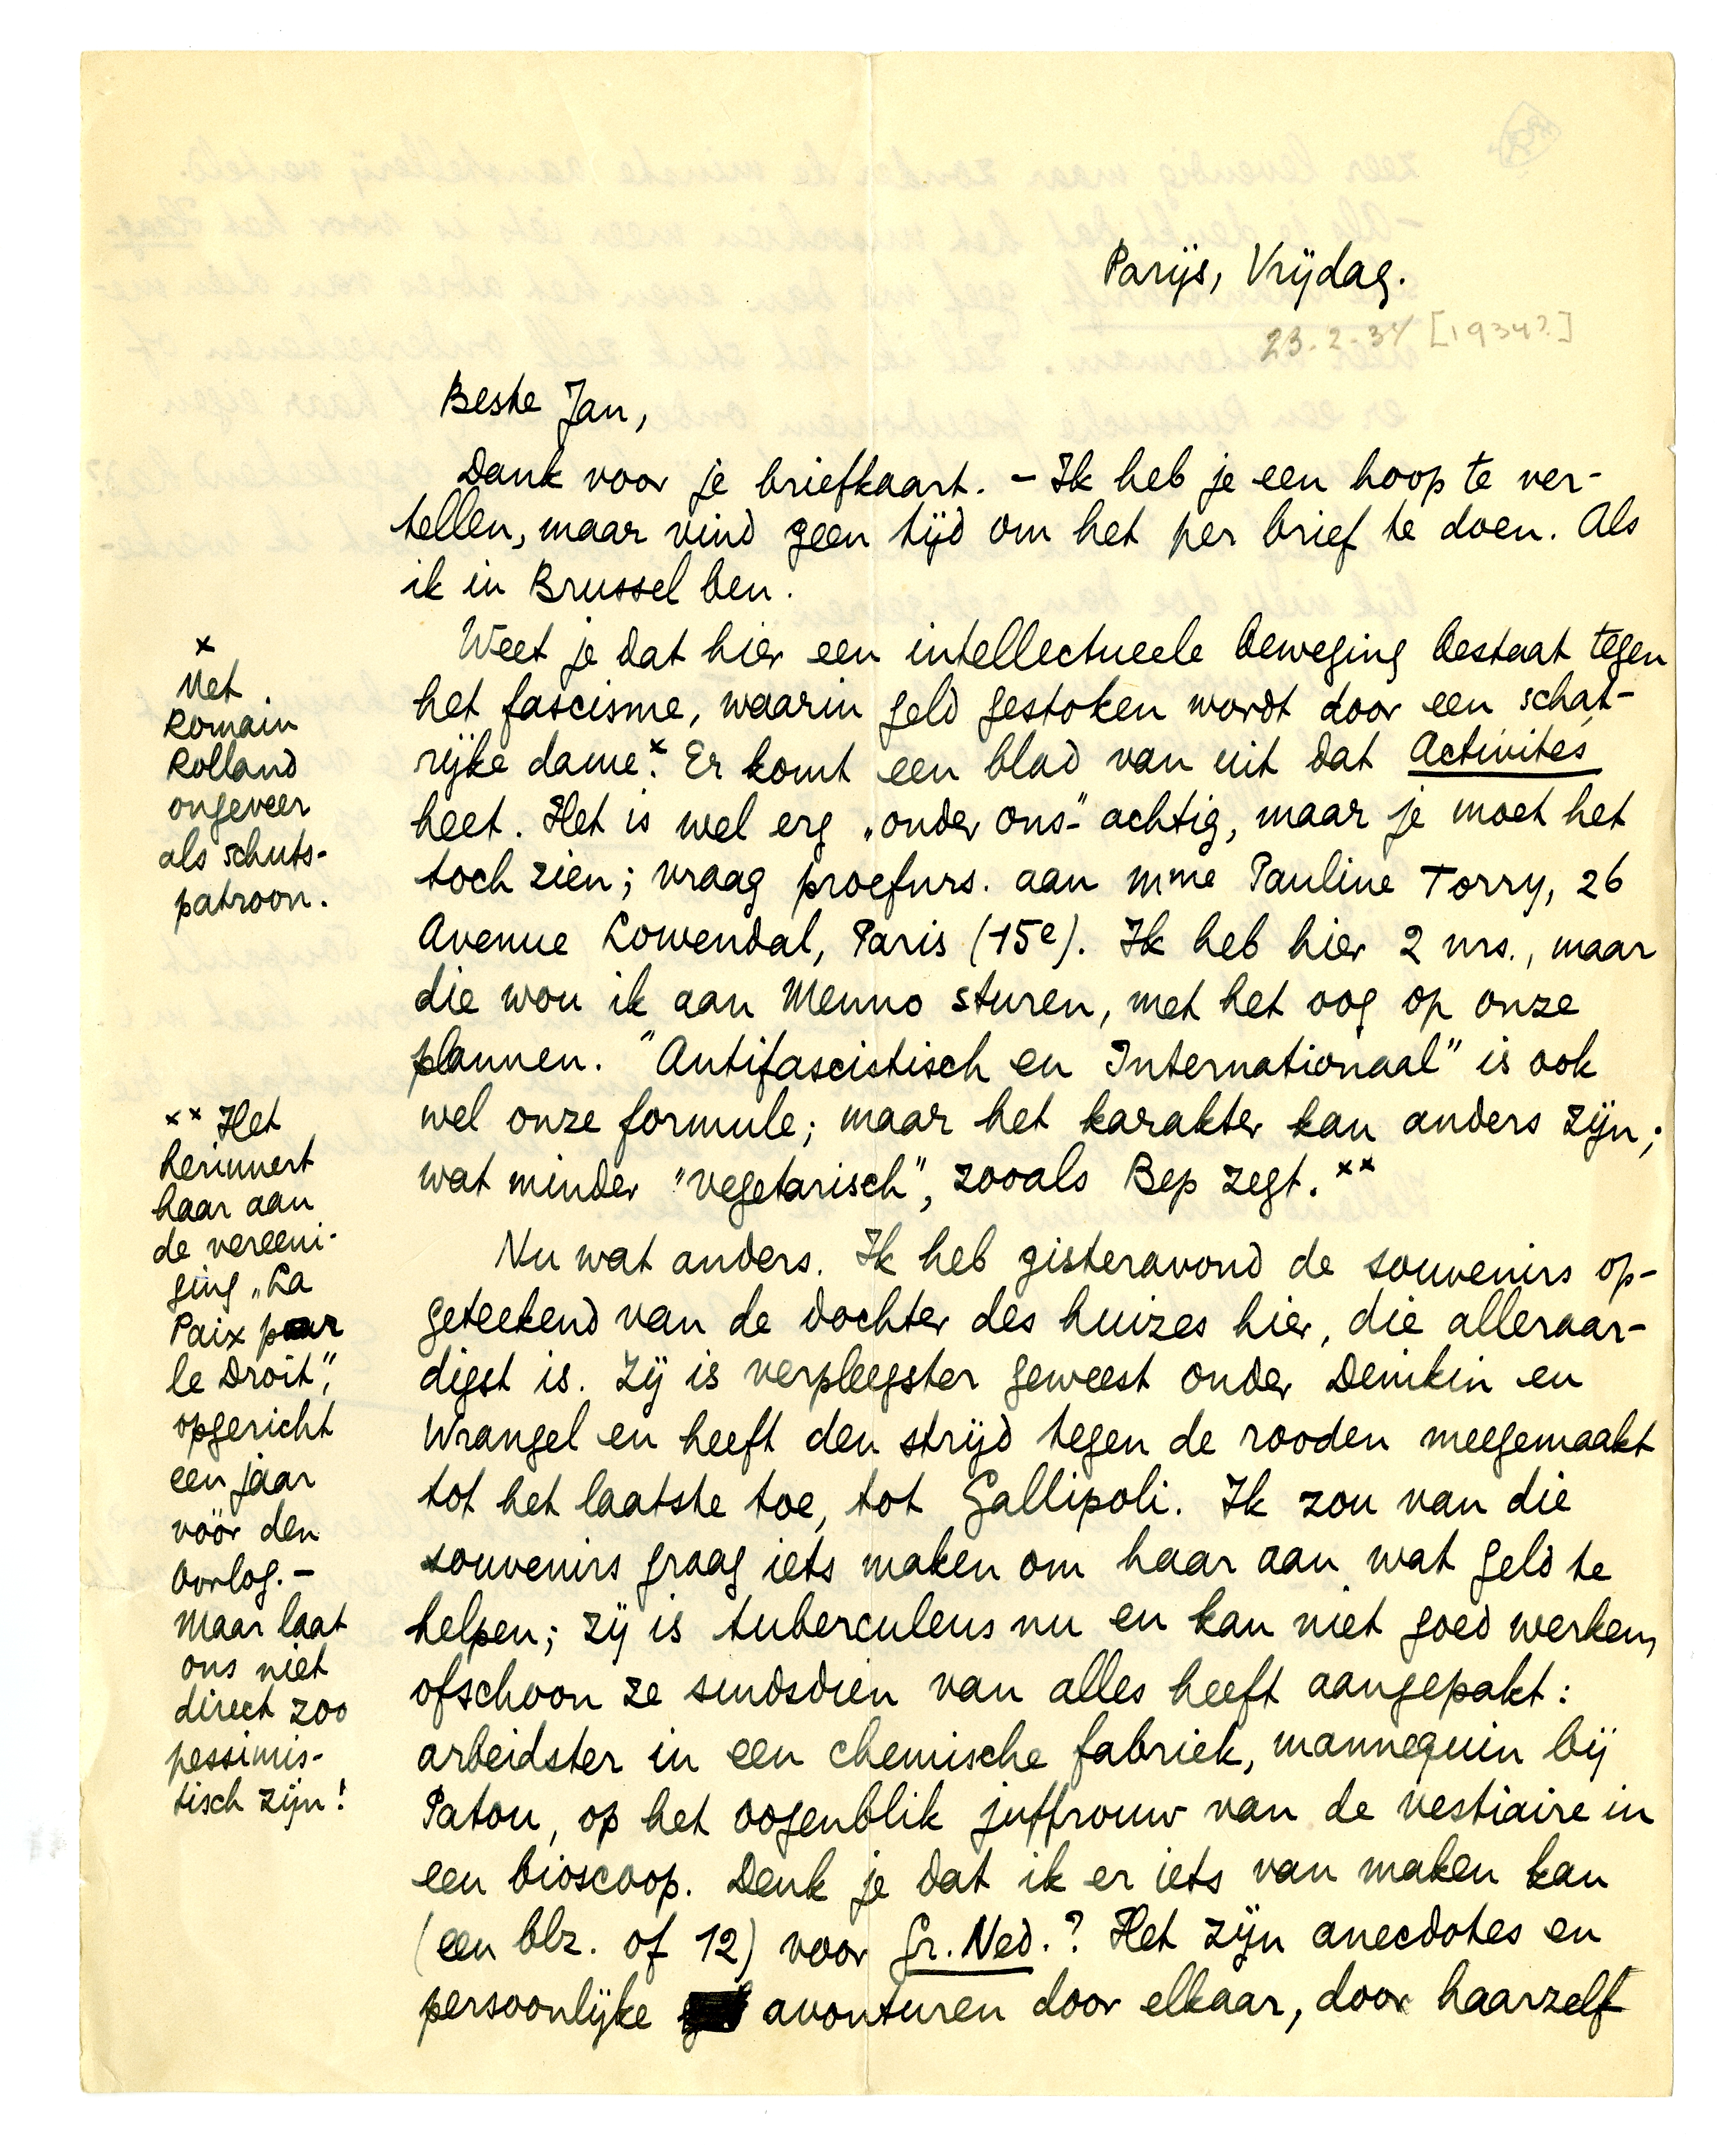 Parijs, Vrijdag.
23-2-34 [1934?]
Beste Jan,
Dank voor je briefkaart. – Ik heb je een hoop te ver-
tellen, maar vind geen tijd om het per brief te doen. Als
ik in Brussel ben.
Weet je dat hier een intellectueele beweging bestaat tegen
het fascisme, waarin geld gestoken wordt door een schat-
rijke dame.x Er komt een blad van uit dat Activités
heet. Het is wel erg „onder ons"-achtig, maar je moet het
toch zien; vraag proefnrs. aan Mme Pauline Torry, 26
Avenue Lowendal, Paris (15e). Ik heb hier 2 nrs., maar
die wou ik aan Menno sturen, met het oog op onze
plannen. "Antifascistisch en Internationaal" is ook
wel onze formule; maar het karakter kan anders zijn;
wat minder "vegetarisch", zooals Bep zegt. xx
Nu wat anders. Ik heb gisteravond de souvenirs op-
geteekend van de dochter des huizes hier, die alleraar-
digst is. Zij is verpleegster geweest onder Denikin en
Wrangel en heeft den strijd tegen de rooden meegemaakt
tot het laatste toe, tot Gallipoli. Ik zou van die
souvenirs graag iets maken om haar aan wat geld te
helpen; zij is tuberculeus nu en kan niet goed werken,
ofschoon ze sindsdien van alles heeft aangepakt:
arbeidster in een chemische fabriek, mannequin bij
Patou, op het oogenblik juffrouw van de vestiaire in
een bioscoop. Denk je dat ik er iets van maken kan
(een blz. of 12) voor Gr. Ned.? Het zijn anecdotes en
persoonlijke avonturen door elkaar, door haarzelf
x
Met
Romain
Rolland
ongeveer
als schuts-
patroon.
xx Het
herinnert
haar aan
de vereeni-
ging „La
Paix par
le Droit",
opgericht
een jaar
vóór den
oorlog. –
Maar laat
ons niet
direct zoo
pessimis-
tisch zijn!